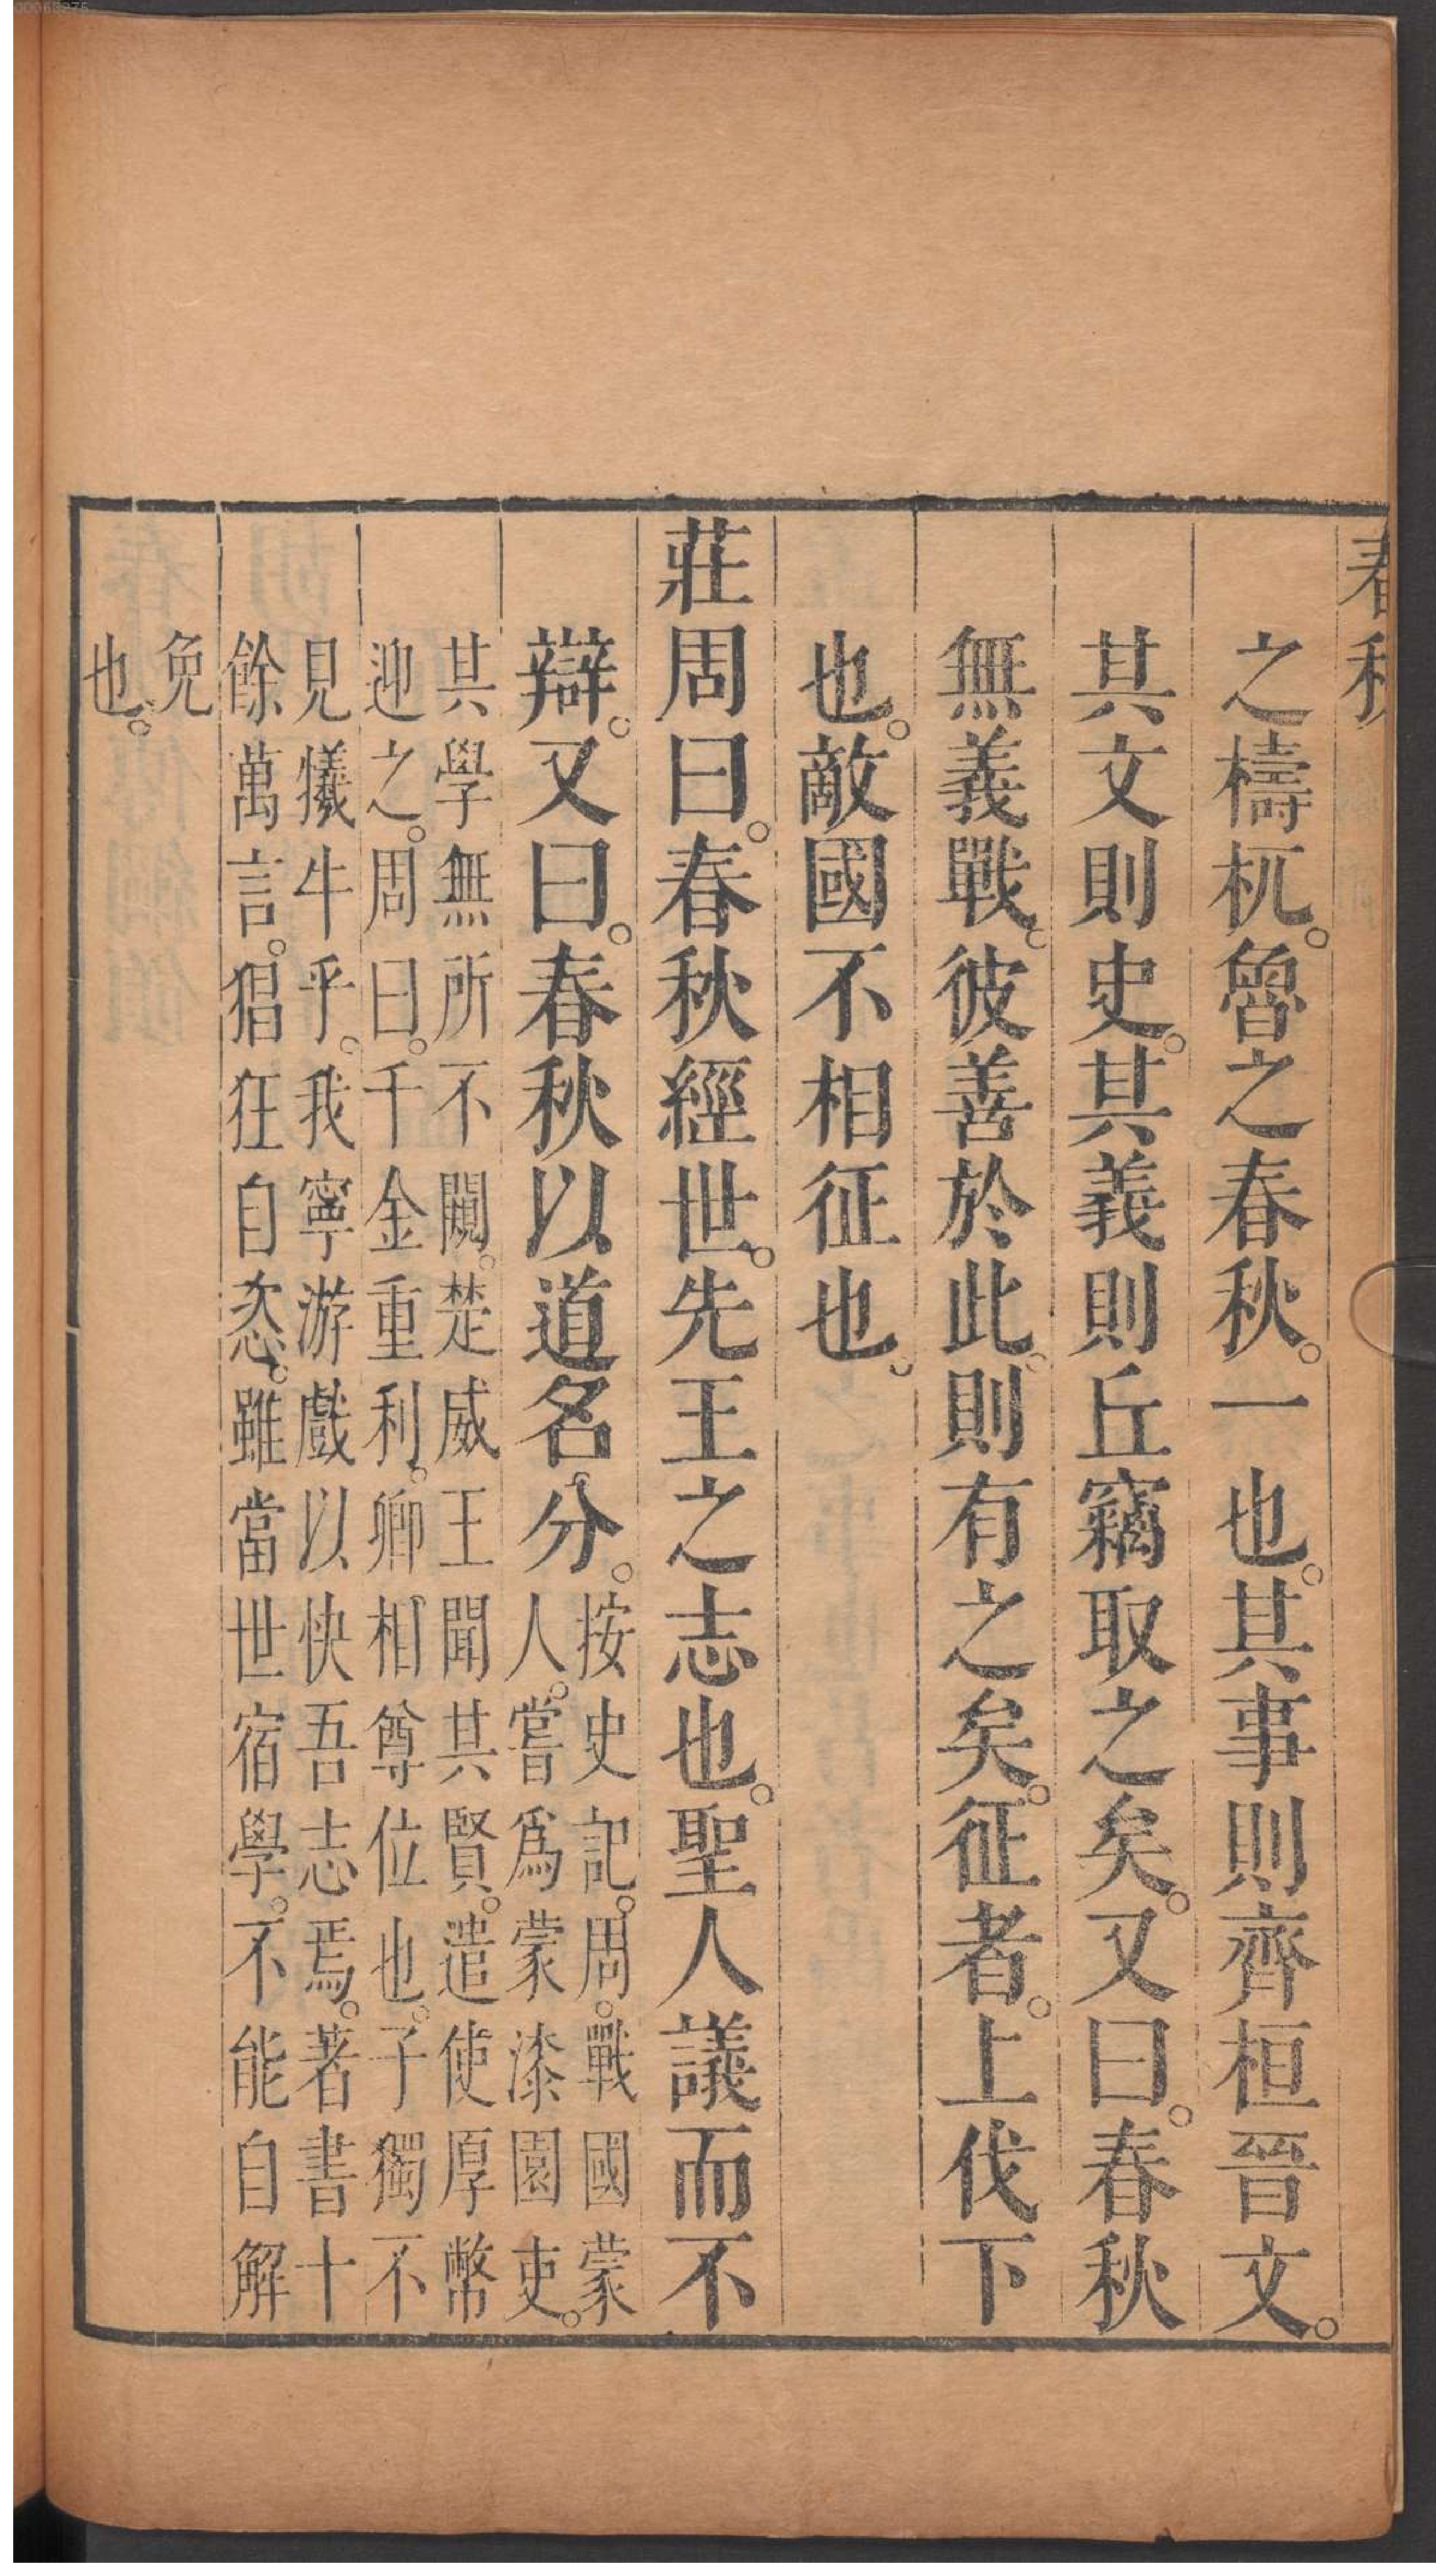 春秋
之檮杌。魯之春秋。一也。其事則齊桓晉文。
其文則史。其義則丘竊取之矣。又曰。春秋
無義戰。彼善於此。則有之矣。征者。上伐下
也。敵國不相征也。
莊周曰。春秋經世。先王之志也。聖人議而不
辯。又曰。春秋以道名分。
按史記。周。戰國蒙
人。嘗爲蒙漆園吏。
其學無所不闚。楚威王聞其賢。遣使厚幣
迎之。周曰。千金重利。卿相尊位也。子獨不
見犧牛乎。我寧游戲以快吾志焉。著書十
餘萬言。猖狂自恣。雖當世宿學。不能自解
免
也。